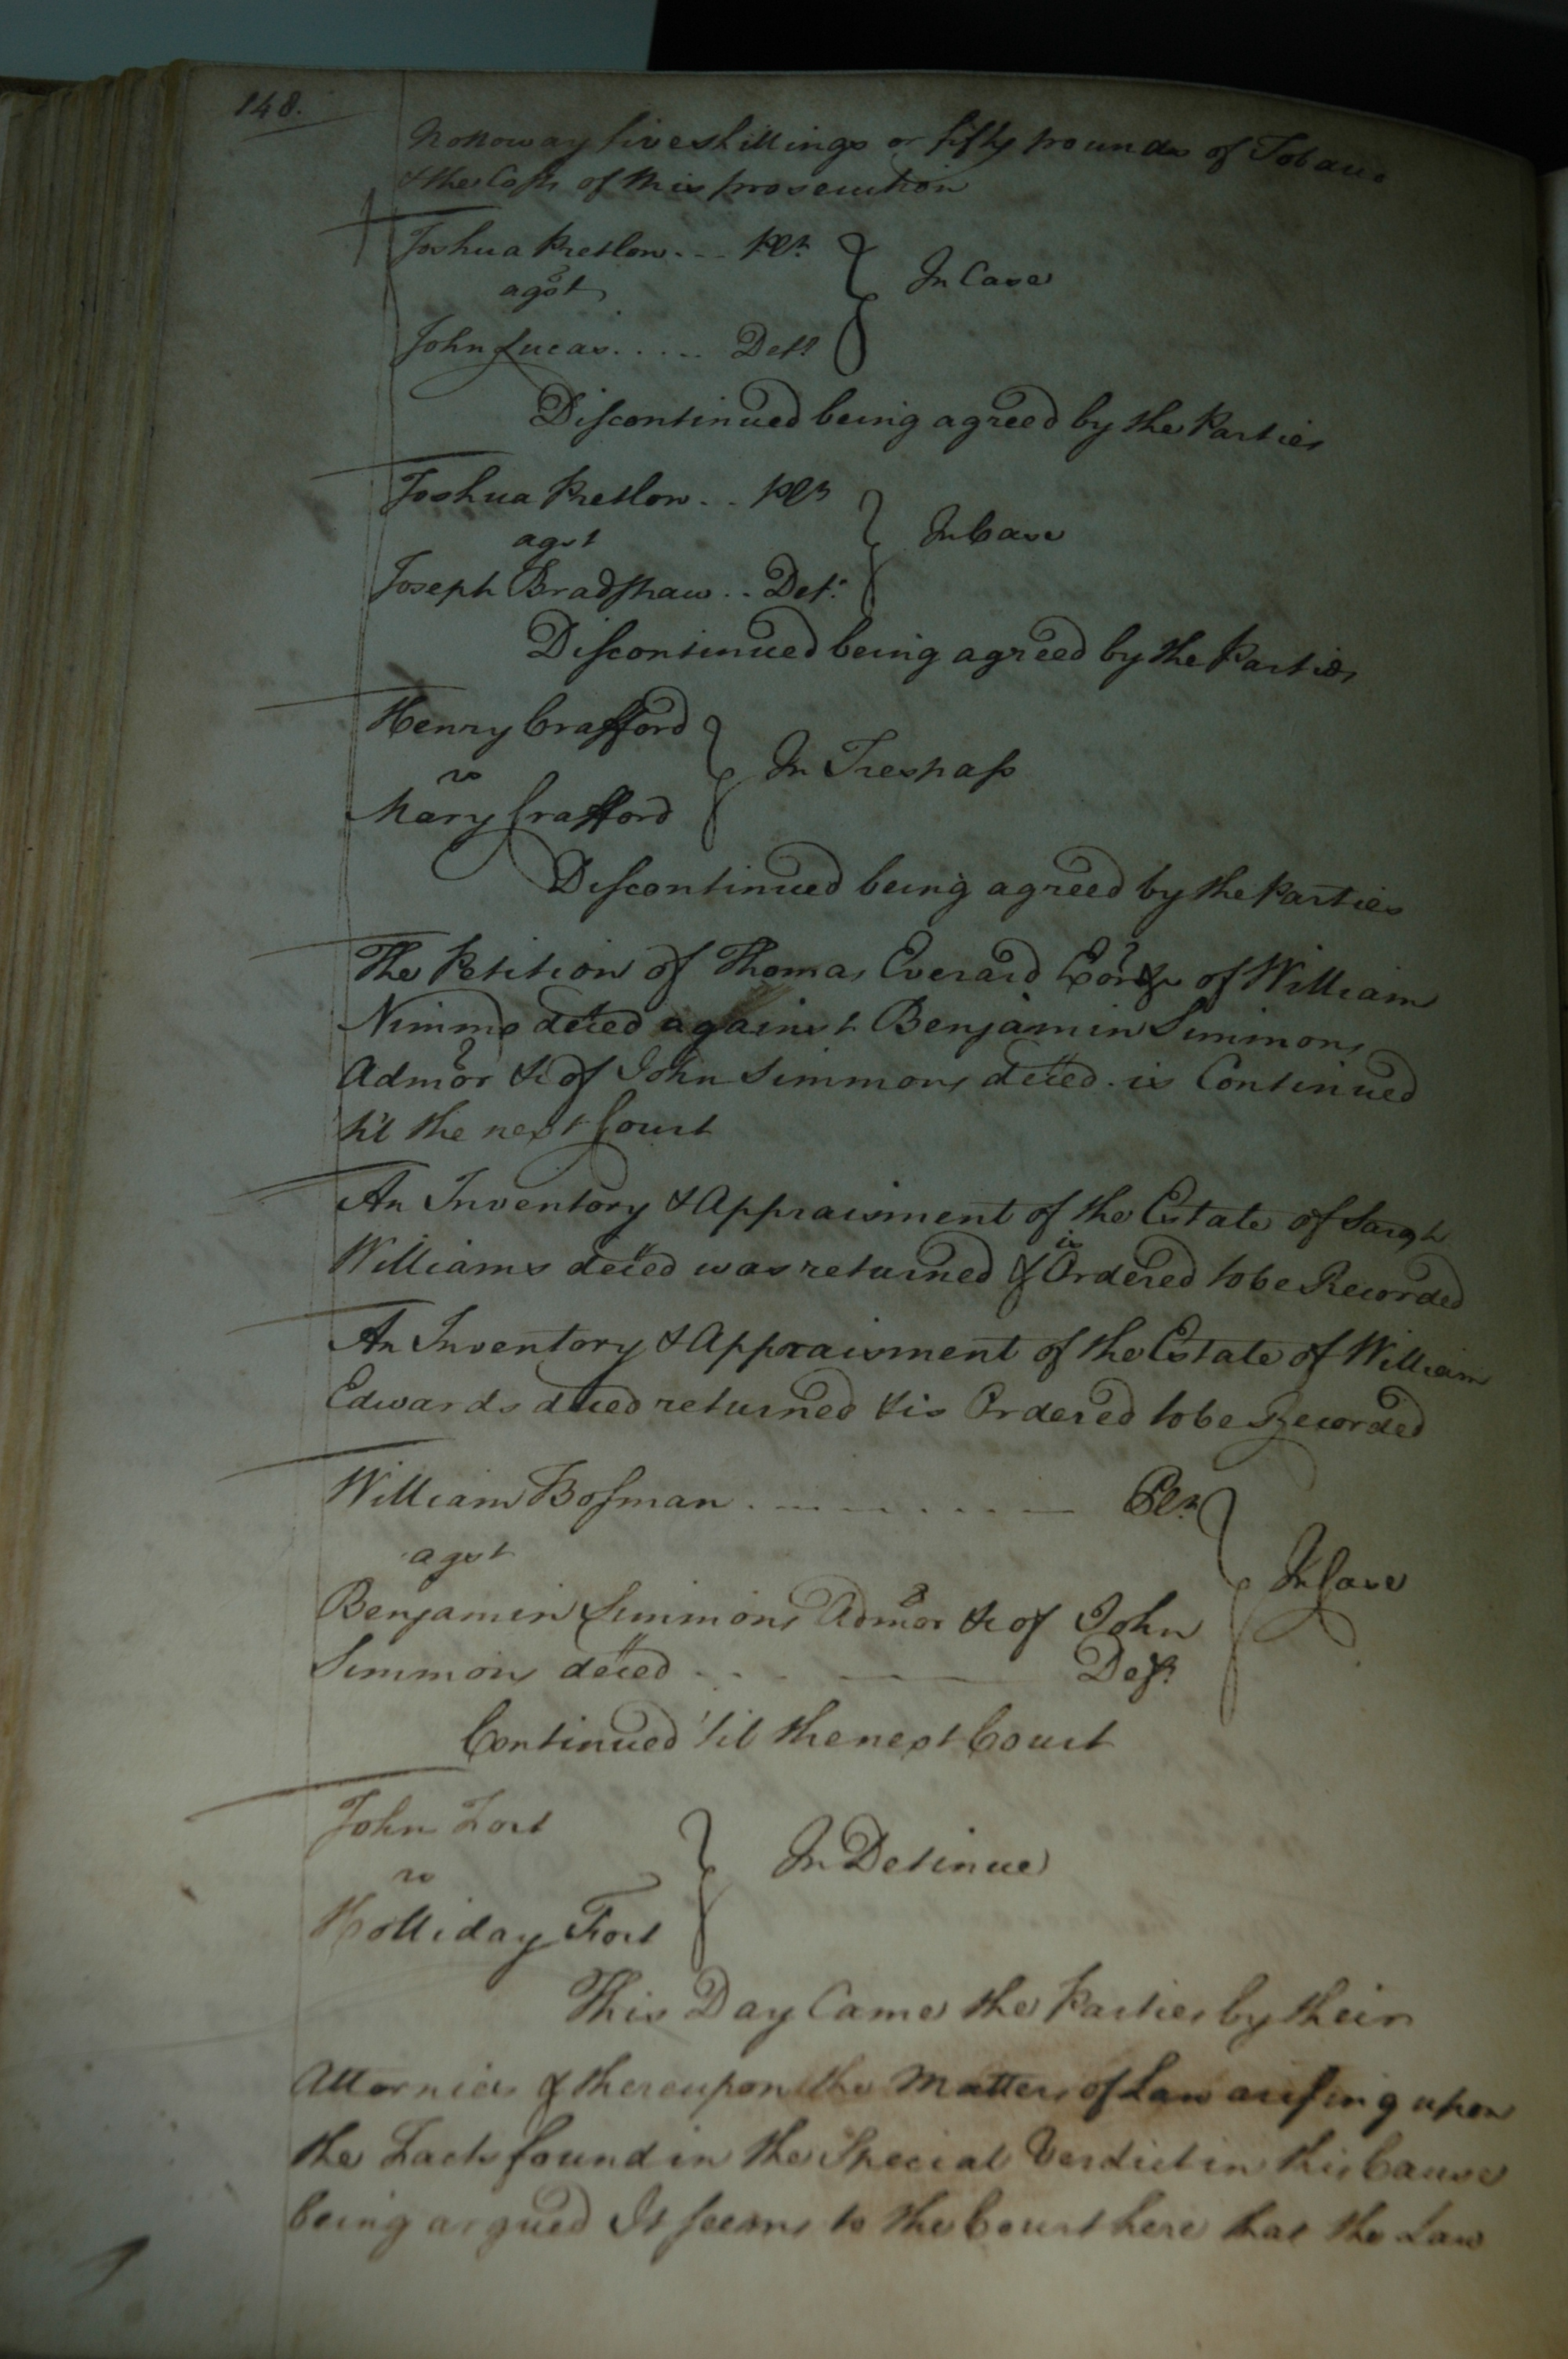 148.
Nottoway five shillings or fifty pounds of Tobacco
& the Costs of this prosecution
Joshua Pretlow... Plt.
agst
John Lucas..... Deft.
In Case
Discontinued being agreed by the Parties
Joshua Pretlow.. Plt
agst
Joseph Bradshaw.. Deft.
In Case
Discontinued being agreed by the Parties
Henry Crafford
vs
Mary Crafford
In Trespass
Discontinued being agreed by the Parties
The Petition of Thomas Everard of William
Nimmo deced against Benjamin Simmons
Admor &c of John Simmons deced. is Continued
til the next Court
An Inventory & Appraisment of the Estate of Sarah
Williams deced was returned & is Ordered to be Recorded
An Inventory & Appraisment of the Estate of William
Edwards deced returned & is Ordered to be Recorded
William Bosman........ Plt
agst
Benjamin Simmons Admor &c of John
Simmons deced.... Deft.
In Case
Continued 'til the next Court
John Fort
vs
Holliday Fort
In Detinue
This Day Came the Parties by their
Attornies & thereupon the Matters of Law arising upon
the Facts found in the Special Verdict in this Cause
being argued It seems to the Court here that the Law